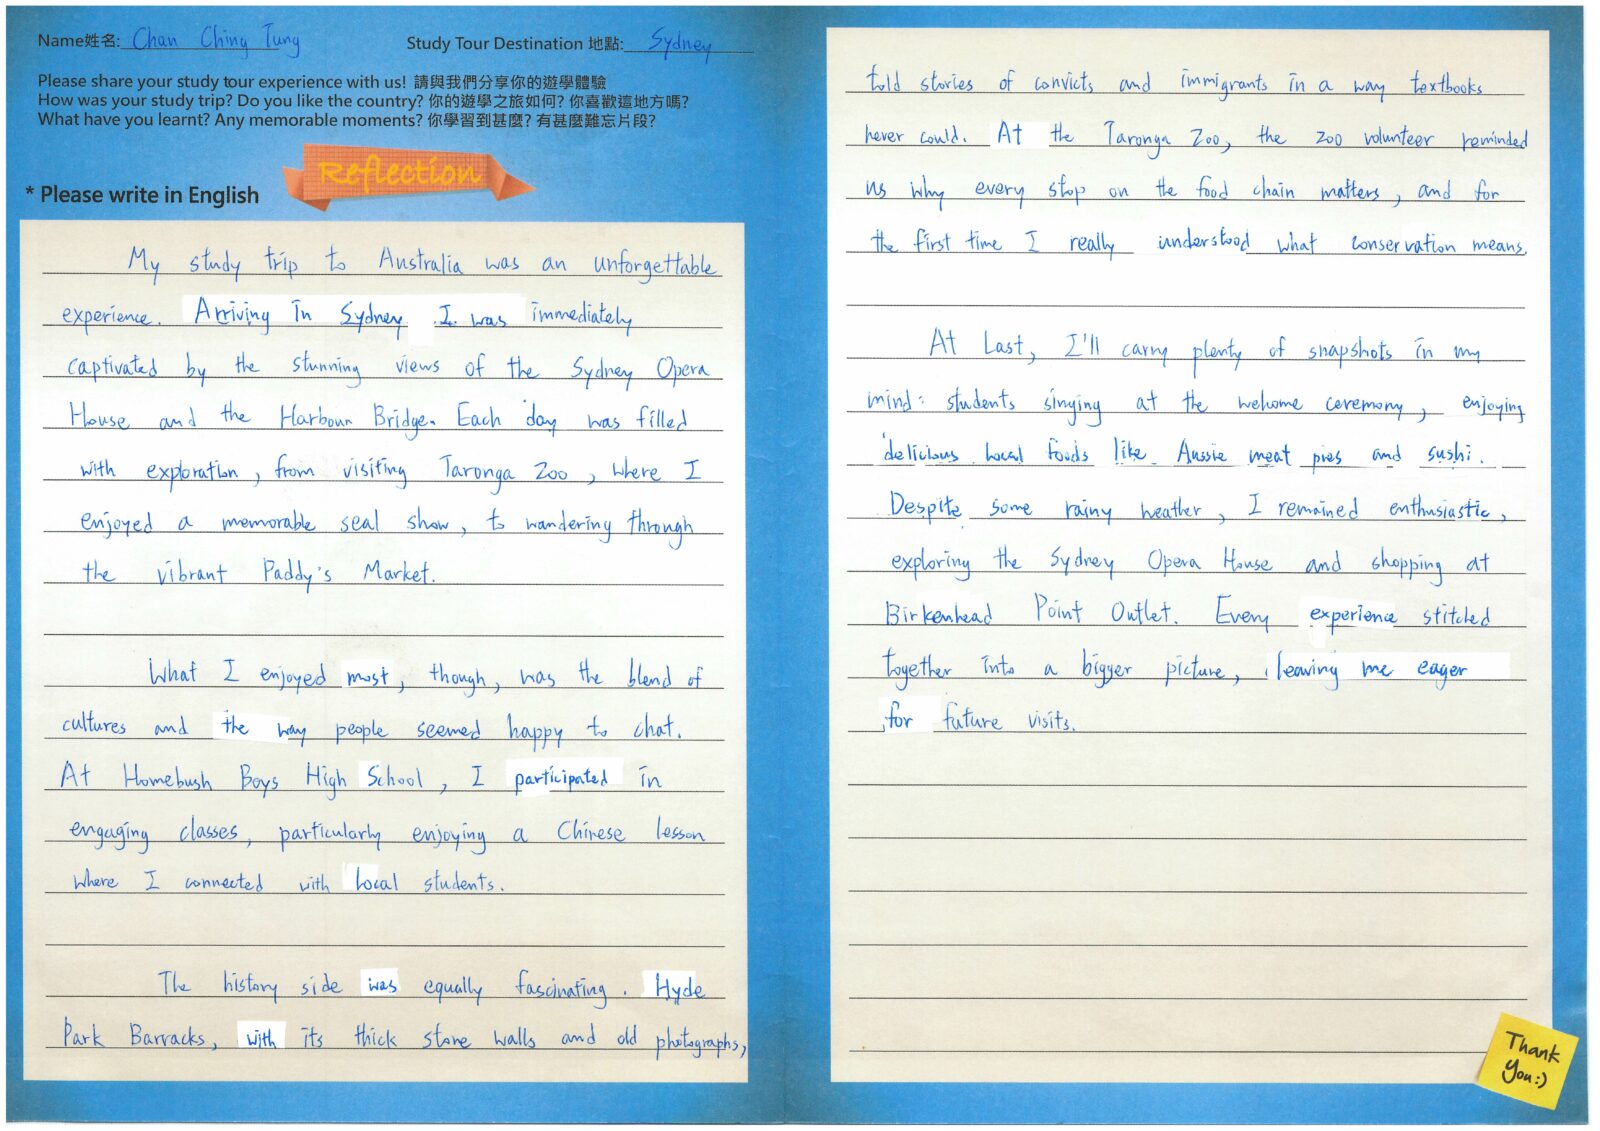 Name姓名: Chan Ching Tung
Study Tour Destination 地點: Sydney
Please share your study tour experience with us! 請與我們分享你的遊學體驗
How was your study trip? Do you like the country? 你的遊學之旅如何? 你喜歡這地方嗎?
What have you learnt? Any memorable moments? 你學習到甚麼? 有甚麼難忘片段?
Reflection
* Please write in English
My study trip to Australia was an unforgettable
experience. Arriving in Sydney I was immediately
captivated by the stunning views of the Sydney Opera
House and the Harbour Bridge. Each day was filled
with exploration, from visiting Taronga Zoo, where I
enjoyed a memorable seal show, to wandering through
the vibrant Paddy's Market.
What I enjoyed most, though, was the blend of
cultures and the way people seemed happy to chat.
At Homebush Boys High School, I participated in
engaging classes, particularly enjoying a Chinese lesson
where I connected with local students.
The history side was equally fascinating. Hyde
Park Barracks, with its thick stone walls and old photographs,
told stories of convicts and immigrants in a way textbooks
never could. At the Taronga Zoo, the zoo volunteer reminded
us why every stop on the food chain matters, and for
the first time I really understood what conservation means.
At Last, I'll carry plenty of snapshots in my
mind: students singing at the welcome ceremony, enjoying
delicious local foods like Aussie meat pies and sushi.
Despite some rainy weather, I remained enthusiastic,
exploring the Sydney Opera House and shopping at
Birkenhead Point Outlet. Every experience stitched
together into a bigger picture, leaving me eager
for future visits.
Thank
You:)